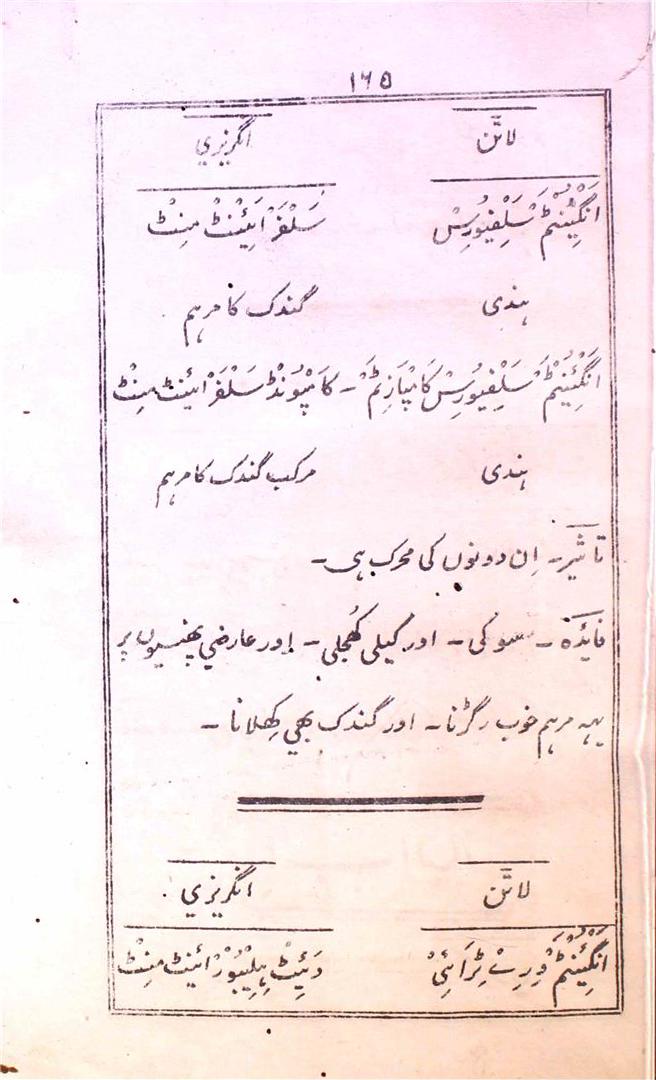 ۱۶۵
لاٹن انگریزي
انگِئنٹم سَلفِیُورِسْ سَلْفَرْ اَئِنْٹْ مِنِٹْ
ہندی گندک کا مرہم
انگِئنٹم سَلفِیُورِسْ کامْپازِٹم ۔ کامْپَونْڈ سَلْفَرْ ائنٹ مِنٹْ
ہندی مرکب گندک کا مرہم
تاثیر۔ اِن دونوں کی محرک ہی۔
فایٔدہ ۔ سوکی ۔ اور گیلی کُھجلی ۔ اور عارضي پھنسیوں پر
یہہ مرہم خوب رگڑنا ۔ اور گندک بھي کِھلانا ۔
لاٹن انگریزي
انگِئنٹم وِرِٹْرائی وَئِیٹْ ہِلِیبُورْ ائنٹ مِنٹْ